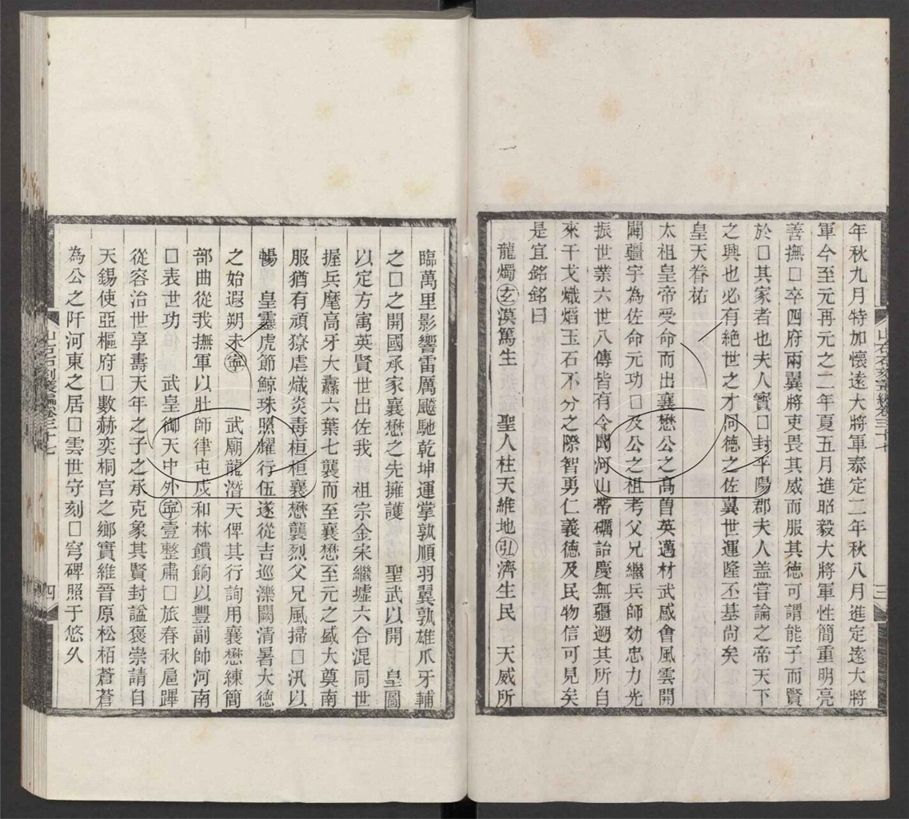 年秋九月特加懷遠大將軍泰定二年秋八月進定遠大將
軍今至元再元之二年夏五月進昭毅大將軍性簡重明亮
善撫□卒四府兩翼將吏畏其威而服其德可謂能子而賢
於□其家者也夫人竇□封平陽郡夫人蓋嘗論之帝天下
之興也必有絶世之才同德之佐翼世運隆丕基尚矣
皇天眷祐
太祖皇帝受命而出襄懋公之高曾英邁材武感會風雲開
闢疆宇為佐命元功□及公之祖考父兄繼兵師効忠力光
振世業六世八傳皆有令聞河山帶礪詒慶無疆遡其所自
來干戈熾熖玉石不分之際智勇仁義德及民物信可見矣
是宜銘銘曰
龍燭玄漠篤生 聖人柱天維地弘濟生民 天威所
山右石刻叢編卷三十七
三
臨萬里影響雷厲飈馳乾坤運掌孰順羽翼孰雄爪牙輔
之□之開國承家襄懋之先擁護 聖武以開 皇圖
以定方㝢英賢世出佐我 祖宗金宋繼墟六合混同世
握兵麾高牙大纛六葉七襲而至襄懋至元之盛大奠南
服猶有頑獠虐熾炎毒桓桓襄懋襲烈父兄風掃□汛以
暢 皇靈虎節鯨珠照耀行伍遂從吉巡灤闕清暑大德
之始遐朔未寧 武廟龍潛天俾其行詢用襄懋練簡
部曲從我撫軍以壯師律屯戍和林饋餉以豐副帥河南
□表世功 武皇御天中外寧壹整肅□旅春秋扈蹕
從容治世享壽天年之子之承克象其賢封謚褒崇請自
天錫使亞樞府□數赫奕桐宮之鄉實維晉原松栢蒼蒼
為公之阡河東之居□雲世守刻□穹碑照于悠久
山右石刻叢編卷三十七
四